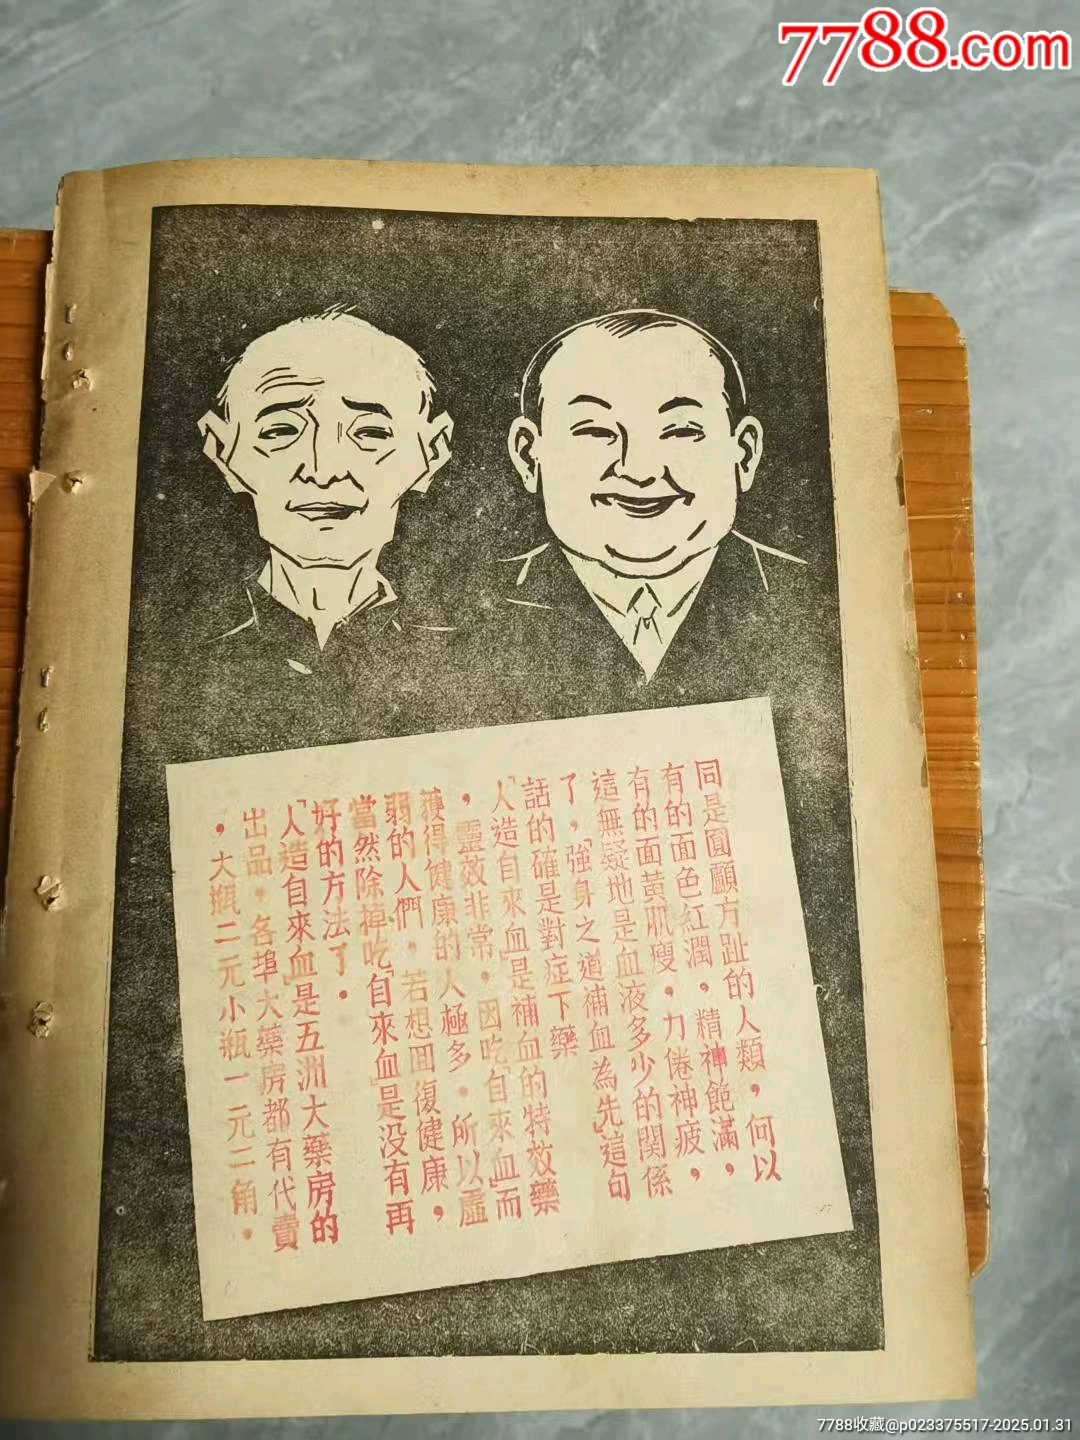 7788.com
同是圓顱方趾的人類，何以
有的面色紅潤，精神飽滿，
有的面黃肌瘦，力倦神疲，
這無疑地是血液多少的関係
了，「強身之道補血為先」這句
話的確是對症下藥
「人造自來血」是補血的特效藥
，靈效非常，因吃「自來血」而
獲得健康的人極多。所以虛
弱的人們，若想回復健康，
當然除掉吃「自來血」是没有再
好的方法了．
「人造自來血」是五洲大藥房的
出品，各埠大藥房都有代賣
，大瓶二元小瓶一元二角．
7788收藏@p023375517-2025.01.31